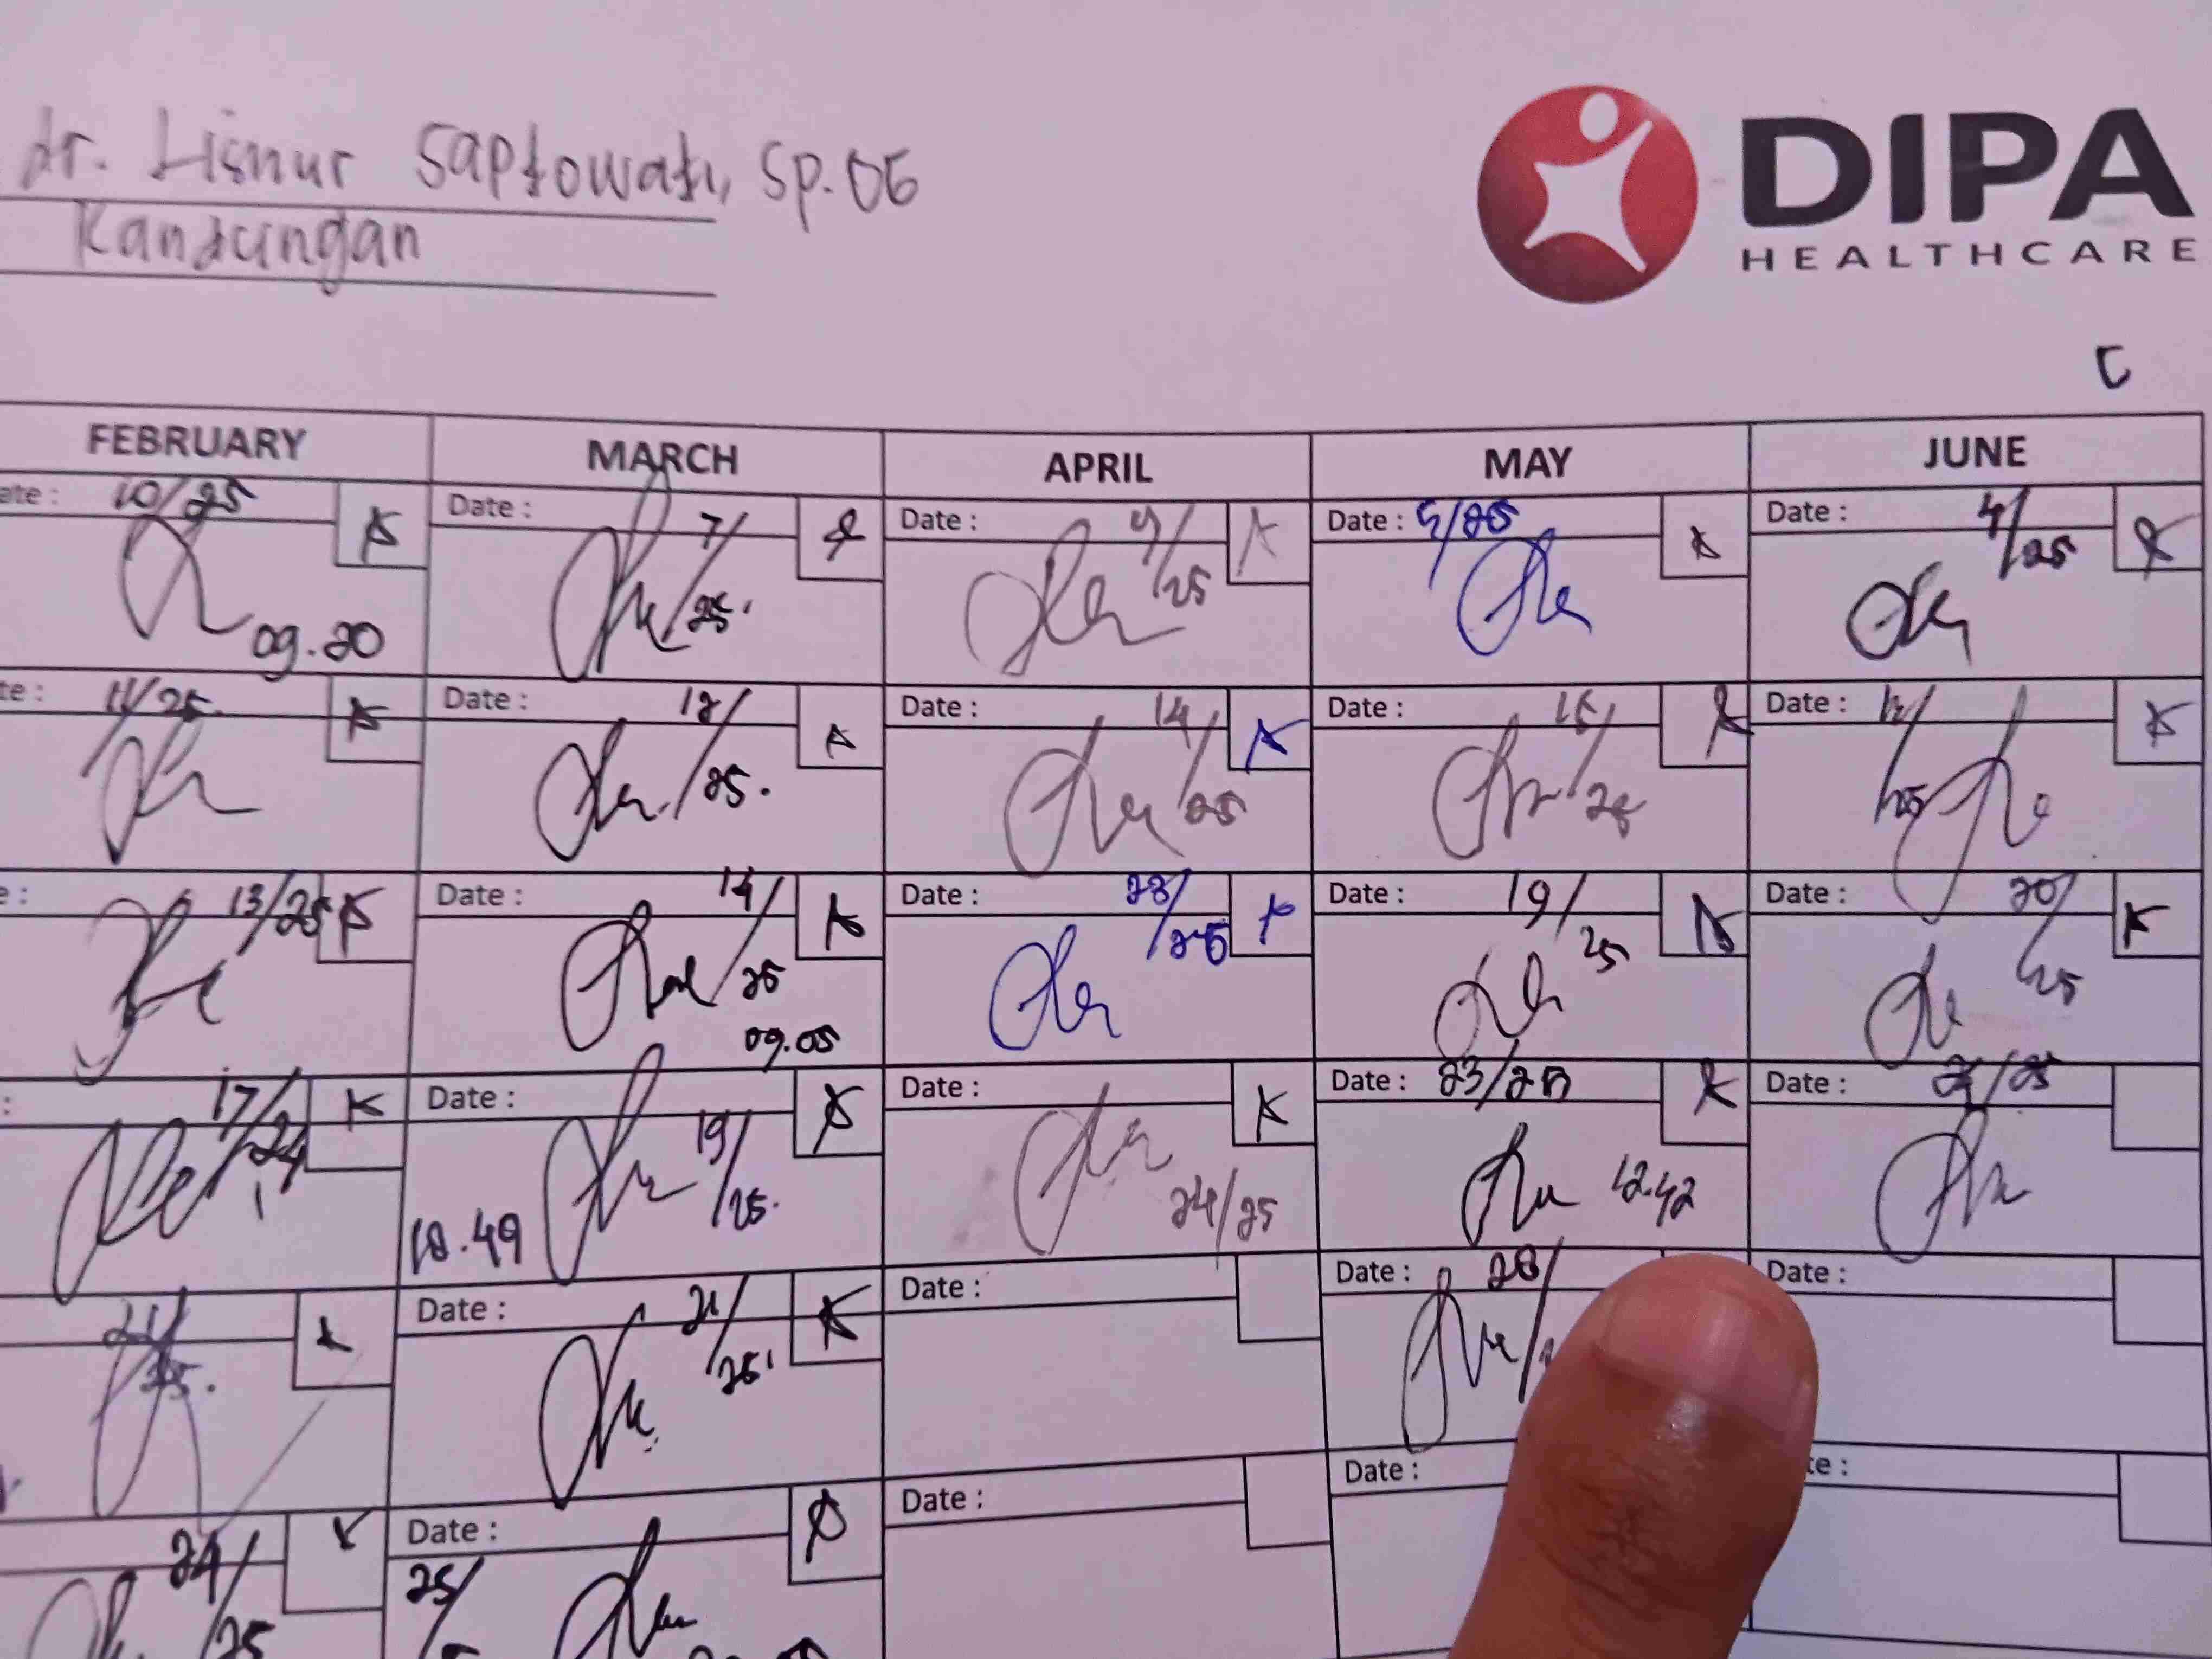 dr. Lisnur Saptowati, Sp.OG
Kandungan
DIPA
HEALTHCARE
FEBRUARY MARCH APRIL MAY JUNE
ate: 10/25 Date: 7/25 Date: 4/25 Date: 5/25 Date: 4/25
09.20
te: 11/25 Date: 12/25. Date: 14/25 Date: 15/25 Date: 12/25
e: 13/25 Date: 14/25 Date: 23/25 Date: 19/25 Date: 20/25
09.05
: 17/24 Date: 19/25. Date: 24/25 Date: 23/25 Date: /25
10.49 12.42
21/25. Date: 21/25 Date: Date: 28/ Date:
24/25 Date: 25/ Date: Date: te: